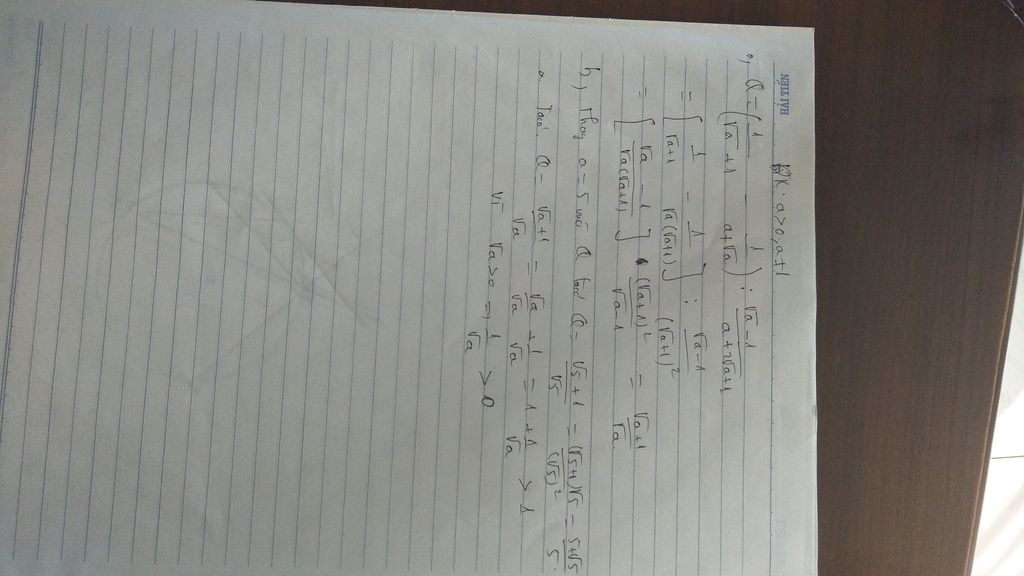 HẢI TIẾN
ĐK: a>0, a≠1
a, Q = (1/(√a+1) - 1/(a+√a)) : (√a-1)/(a+2√a+1)
= [1/(√a+1) - 1/(√a(√a+1))] : (√a-1)/(√a+1)²
= [(√a-1)/(√a(√a+1))] . (√a+1)²/(√a-1) = (√a+1)/√a
b) Thay a=5 vào Q Q = (√5+1)/√5 = (√5+1)√5/(√5)² = (5+√5)/5.
Ta có: Q = (√a+1)/√a = √a/√a + 1/√a = 1 + 1/√a > 1
Vì √a>0 => 1/√a > 0